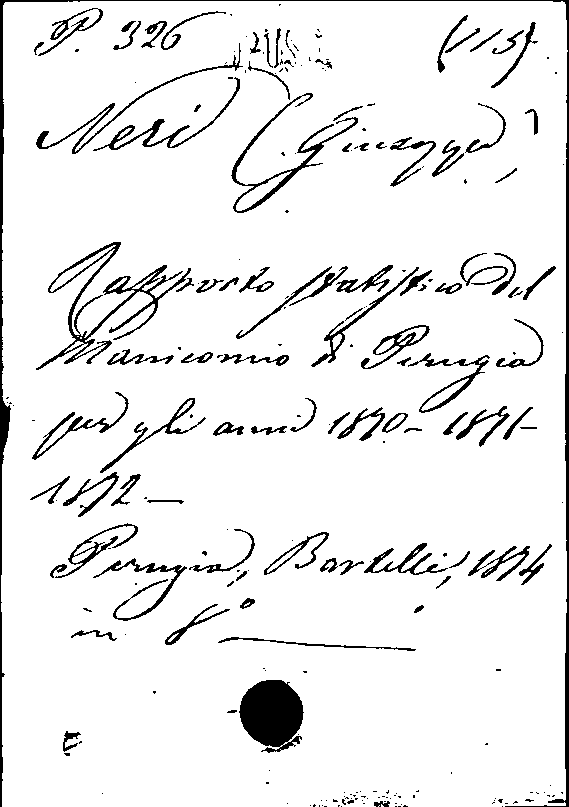 P. 326 (115)
Neri (Giuseppe)
Rapporto statistico del
Manicomio di Perugia
per gli anni 1870- 1871-
1872 —
Perugia, Bartelli, 1874
in 8°